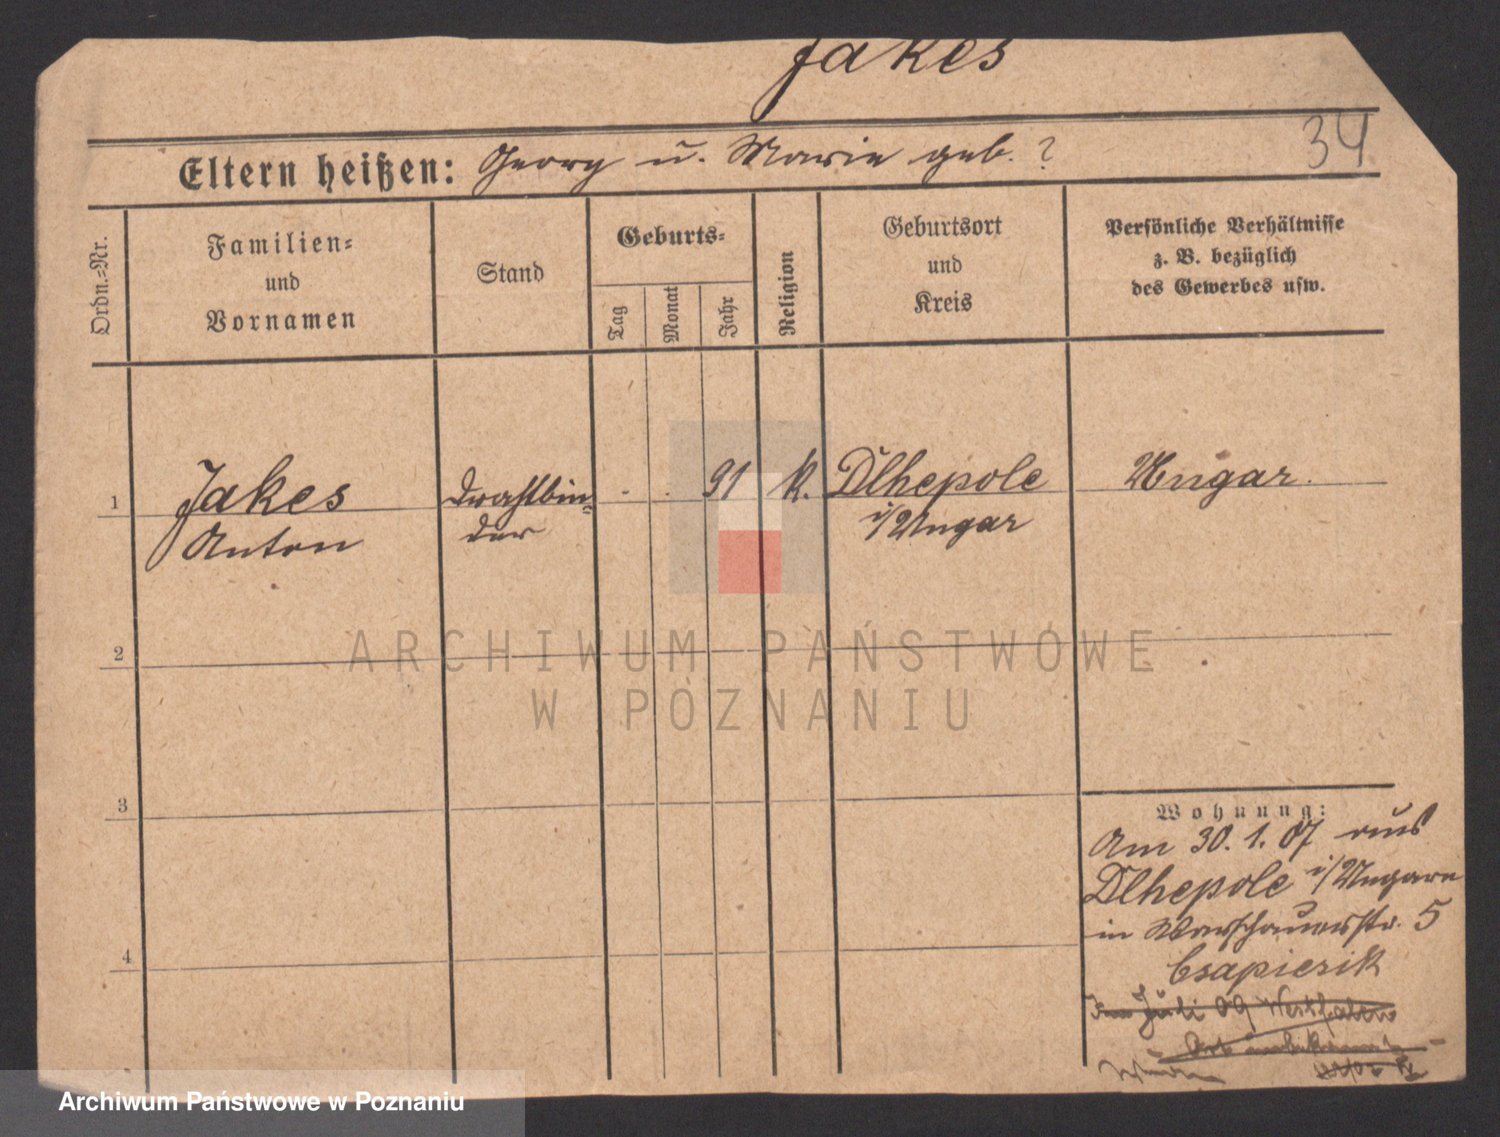 Jakes
34
Eltern heißen: Georg u. Marie geb. ?
Ordn.-Nr.
Familien- und Vornamen
Stand
Geburts-
Tag
Monat
Jahr
Religion
Geburtsort und Kreis
Persönliche Verhältnisse
z. B. bezüglich
des Gewerbes usw.
1
Jakes
Anton
Drahtbin-
der
- . 91
k.
Dlhepole
i/Ungar
Ungar.
2
3
4
Wohnung:
Am 30. 1. 07 aus
Dlhepole i/Ungarn
in Warschauerstr. 5
Csapierik
Im Juli 09 Westfalen
Ort unbekannt
ARCHIWUM PAŃSTWOWE
W POZNANIU
Archiwum Państwowe w Poznaniu